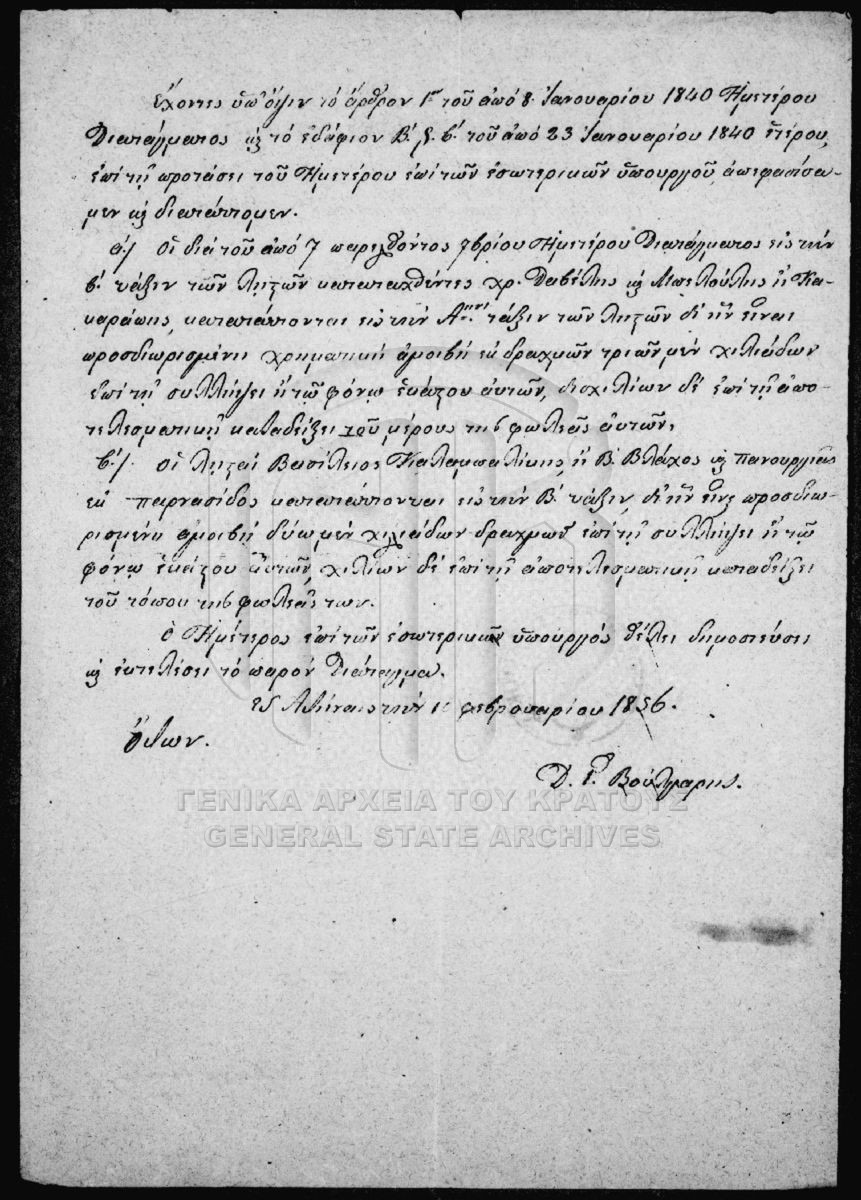 Ἔχοντες ὑπ' ὄψιν τὸ ἄρθρον 1ον τοῦ ἀπὸ 8 Ἰανουαρίου 1840 Ἡμετέρου
Διατάγματος καὶ τὸ ἐδάφιον Β'. §. β'. τοῦ ἀπὸ 23 Ἰανουαρίου 1840 ἑτέρου,
ἐπὶ τῇ προτάσει τοῦ Ἡμετέρου ἐπὶ τῶν ἐσωτερικῶν ὑπουργοῦ, ἀπεφασίσα-
μεν καὶ διατάττομεν.
α'./ Οἱ διὰ τοῦ ἀπὸ 7 παρελθόντος 7βρίου Ἡμετέρου Διατάγματος εἰς τὴν
β'. τάξιν τῶν ληστῶν καταταχθέντες χρ. Δαβέλης καὶ Μπελούλης ἢ Κα-
καράπης, κατατάττονται εἰς τὴν Αην τάξιν τῶν ληστῶν δι' ἣν εἶναι
προσδιωρισμένη χρηματικὴ ἀμοιβὴ ἐκ δραχμῶν τριῶν μὲν χιλιάδων
ἐπὶ τῇ συλλήψει ἢ τῷ φόνῳ ἑκάστου αὐτῶν, δισχιλίων δὲ ἐπὶ τῇ ἀπο-
τελεσματικῇ καταδείξει τοῦ μέρους τῆς φωλεᾶς αὐτῶν·
β'./ Οἱ λησταὶ Βασίλειος Καλαμπαλίκης ἢ Β. Βλάχος καὶ Πανουργιᾶς
ἐκ Παρνασίδος κατατάττονται εἰς τὴν Β'. τάξιν, δι' ἣν εἶναι προσδιω-
ρισμένη ἀμοιβὴ δύω μὲν χιλιάδων δραχμῶν ἐπὶ τῇ συλλήψει ἢ τῷ
φόνῳ ἑκάστου αὐτῶν, χιλίων δὲ ἐπὶ τῇ ἀποτελεσματικῇ καταδείξει
τοῦ τόπου τῆς φωλεᾶς των.
Ὁ Ἡμέτερος ἐπὶ τῶν ἐσωτερικῶν ὑπουργὸς θέλει δημοσιεύσει
καὶ ἐκτελέσει τὸ παρὸν Διάταγμα.
Ἐν Ἀθήναις τὴν φεβρουαρίου 1856.
Ὄθων.
Δ. Γ. Βούλγαρης.
ΓΕΝΙΚΑ ΑΡΧΕΙΑ ΤΟΥ ΚΡΑΤΟΥΣ
GENERAL STATE ARCHIVES